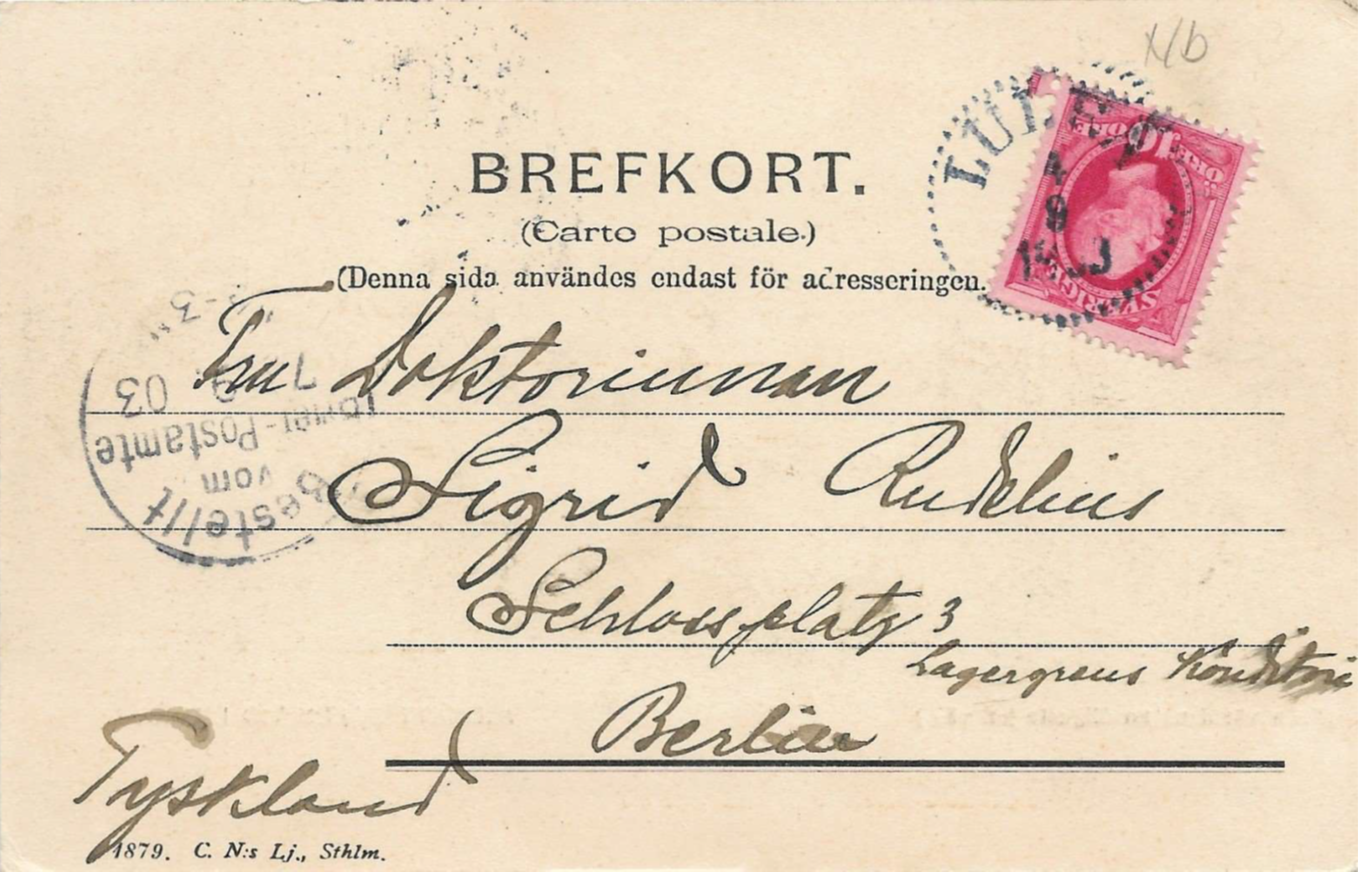 N/b
LULEÅ
4
9
1903
10 ÖRE
SVERIGE
BREFKORT.
(Carte postale.)
(Denna sida användes endast för adresseringen.
Fru Doktorinnan
Sigrid Rudelius
Schlossplatz 3
Lagergrens Konditori
Berlin
Tyskland
Bestellt
vom
Postamte
7 9 03
1879. C. N:s Lj., Sthlm.